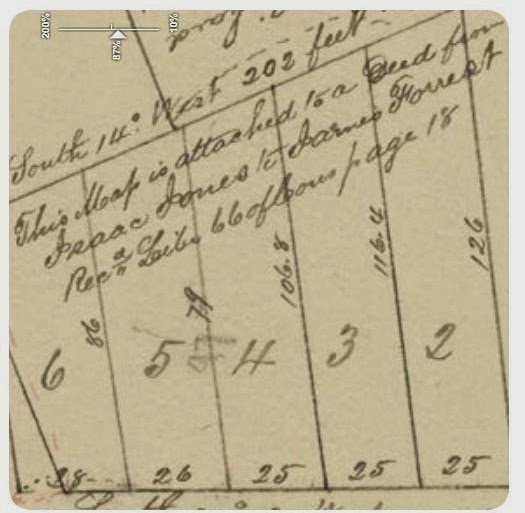 200%
87%
10%
South 14° West 202 feet
This Map is attached to a Deed from
Isaac Jones to James Forrest
Recd in Liber 66 of Cons page 18
86
79
97
106.8
116.4
126
6
5
4
3
2
28
26
25
25
25